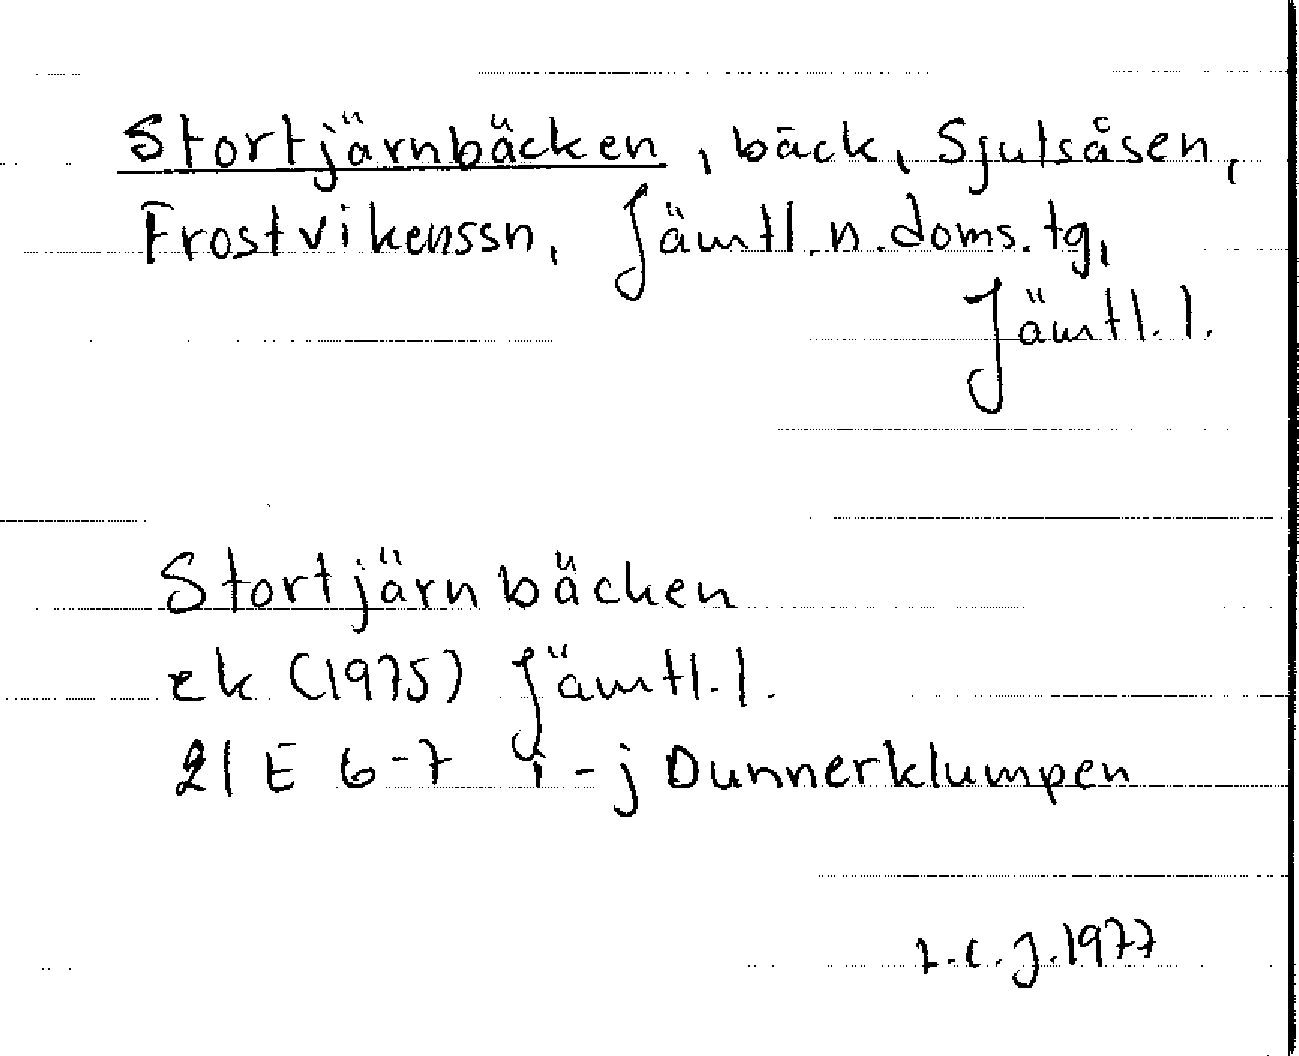 Stortjärnbäcken, bäck, Sjulsåsen,
Frostvikenssn, Jämtl.n.doms.tg,
Jämtl.l.
Stortjärnbäcken
ek (1975) Jämtl.l.
21 E 6-7 i-j Dunnerklumpen
1977